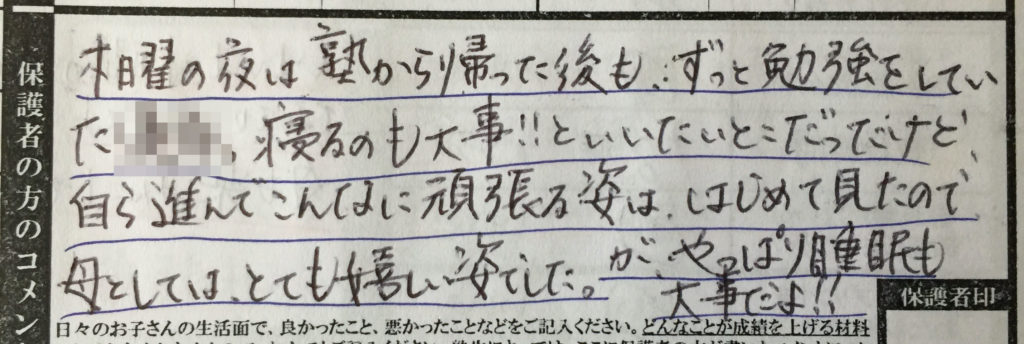 保護者の方のコメン
木曜の夜は塾から帰った後も、ずっと勉強をしてい
た 、寝るのも大事!!といいたいとこだったけど、
自ら進んでこんなに頑張る姿は、はじめて見たので
母としては、とても嬉しい姿でした。が、やっぱり睡眠も
大事だよ!!
保護者印
日々のお子さんの生活面で、良かったこと、悪かったことなどをご記入ください。どんなことが成績を上げる材料